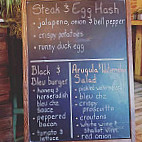 Steak & Egg Hash
• jalapeno, onion & bell pepper
• crispy potatoes
• runny duck egg
Black &
Bleu burger
• honey &
horseradish
bleu chz
sauce
• peppered
bacon
• tomato &
lettuce
Arugula
Salad
• pickled
• bleu chz
• crispy
prosciutto
• croutons
• white wine &
shallot vinai
• red onion